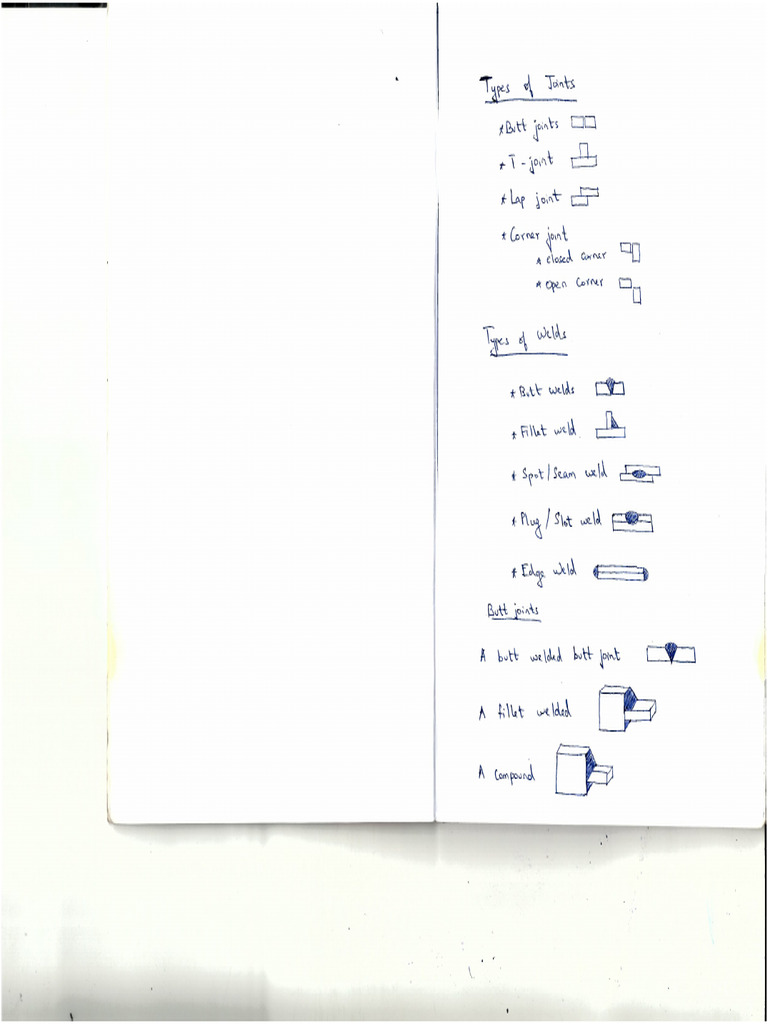 Types of Joints
* Butt joints
* T-joint
* Lap joint
* Corner joint
* closed corner
* open corner
Types of Welds
* Butt welds
* Fillet weld
* Spot/Seam weld
* Plug/Slot weld
* Edge weld
Butt joints
A butt welded butt joint
A fillet welded
A compound